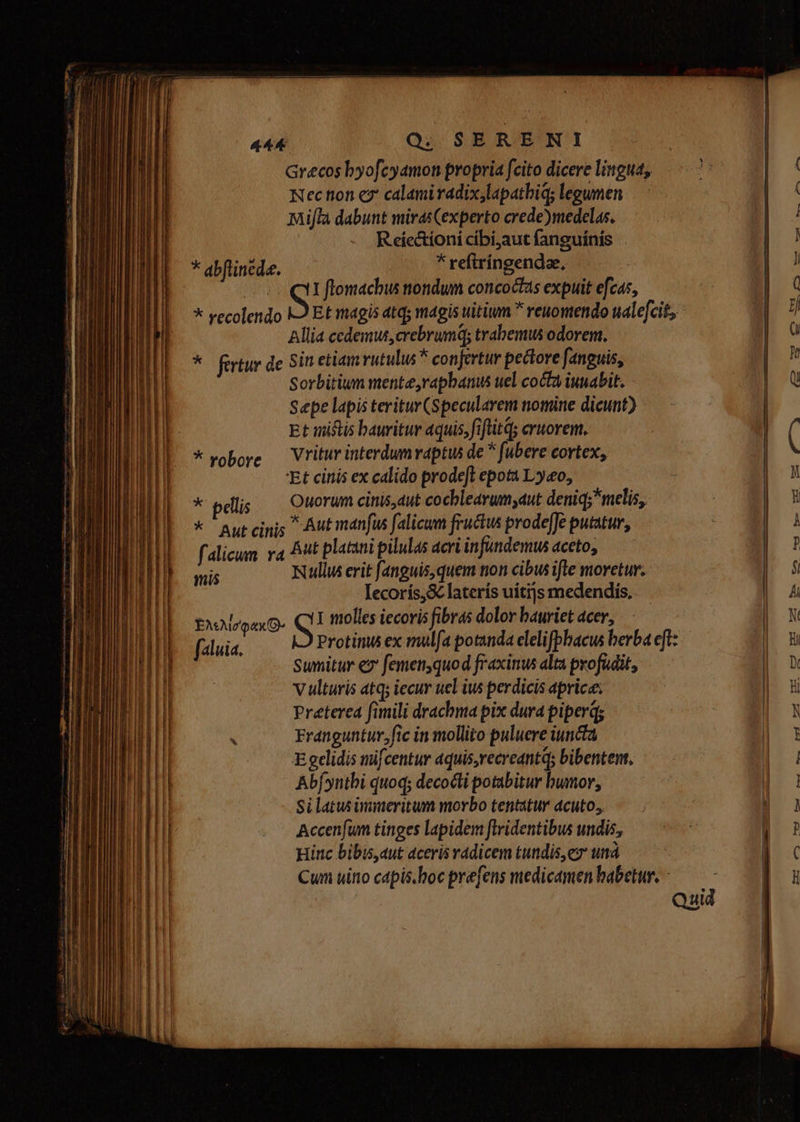 444 Q. SERENI
Græcos hyoſcyamon propria ſcito dicere lingua,
Nec non & calami radix, lapathiq́; legumen
Miſſa dabunt miras (experto crede) medelas.
Reiectioni cibi, aut ſanguinis
* abſtinēdæ. * reſtringendæ,
SI ſtomachus nondum concoctas expuit eſcas,
* recolendo Et magis atq; magis uitium * reuomendo ualeſcit,
Allia cedemus, crebrumq́; trahemus odorem.
* fertur de Sin etiam rutulus * confertur pectore ſanguis,
Sorbitium mentæ, raphanus uel cocta iuuabit.
Sæpe lapis teritur (Specularem nomine dicunt)
Et miſtis hauritur aquis, ſiſtitq́; cruorem.
* robore Vritur interdum raptus de * ſubere cortex,
Et cinis ex calido prodeſt epota Lyæo,
* pellis Quorum cinis, aut cochlearum, aut deniq; * melis,
* Aut cinis * Aut manſus ſalicum fructus prodeſſe putatur,
ſalicum ra Aut platani pilulas acri infundemus aceto,
mis Nullus erit ſanguis, quem non cibus iſte moretur.
Iecoris, & lateris uitijs medendis.
SI molles iecoris fibras dolor hauriet acer,
ſaluia. Protinus ex mulſa potanda eleliſphacus herba eſt:
Sumitur & ſemen, quod fraxinus alta profūdit,
Vulturis atq; iecur uel ius perdicis apricæ.
Præterea ſimili drachma pix dura piperq́;
Franguntur, ſic in mollito puluere iuncta
Egelidis miſcentur aquis, recreantq́; bibentem.
Abſynthi quoq; decocti potabitur humor,
Si latus immeritum morbo tentatur acuto,
Accenſum tinges lapidem ſtridentibus undis,
Hinc bibis, aut aceris radicem tundis, & unà
Cum uino capis. hoc præſens medicamen habetur.
Quid